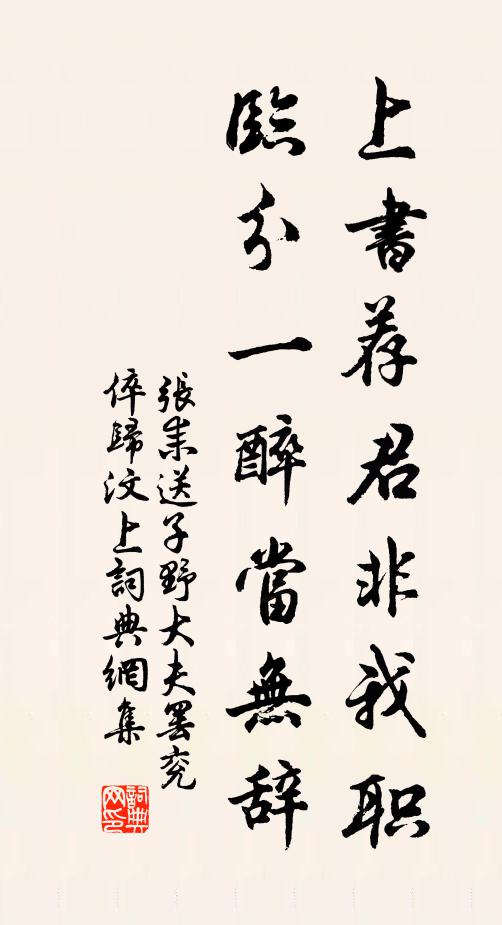 上書荐君非我职
臨分一醉當無辞
張耒送子野大夫罢兖
倅歸汶上詞典網集
詞典网印